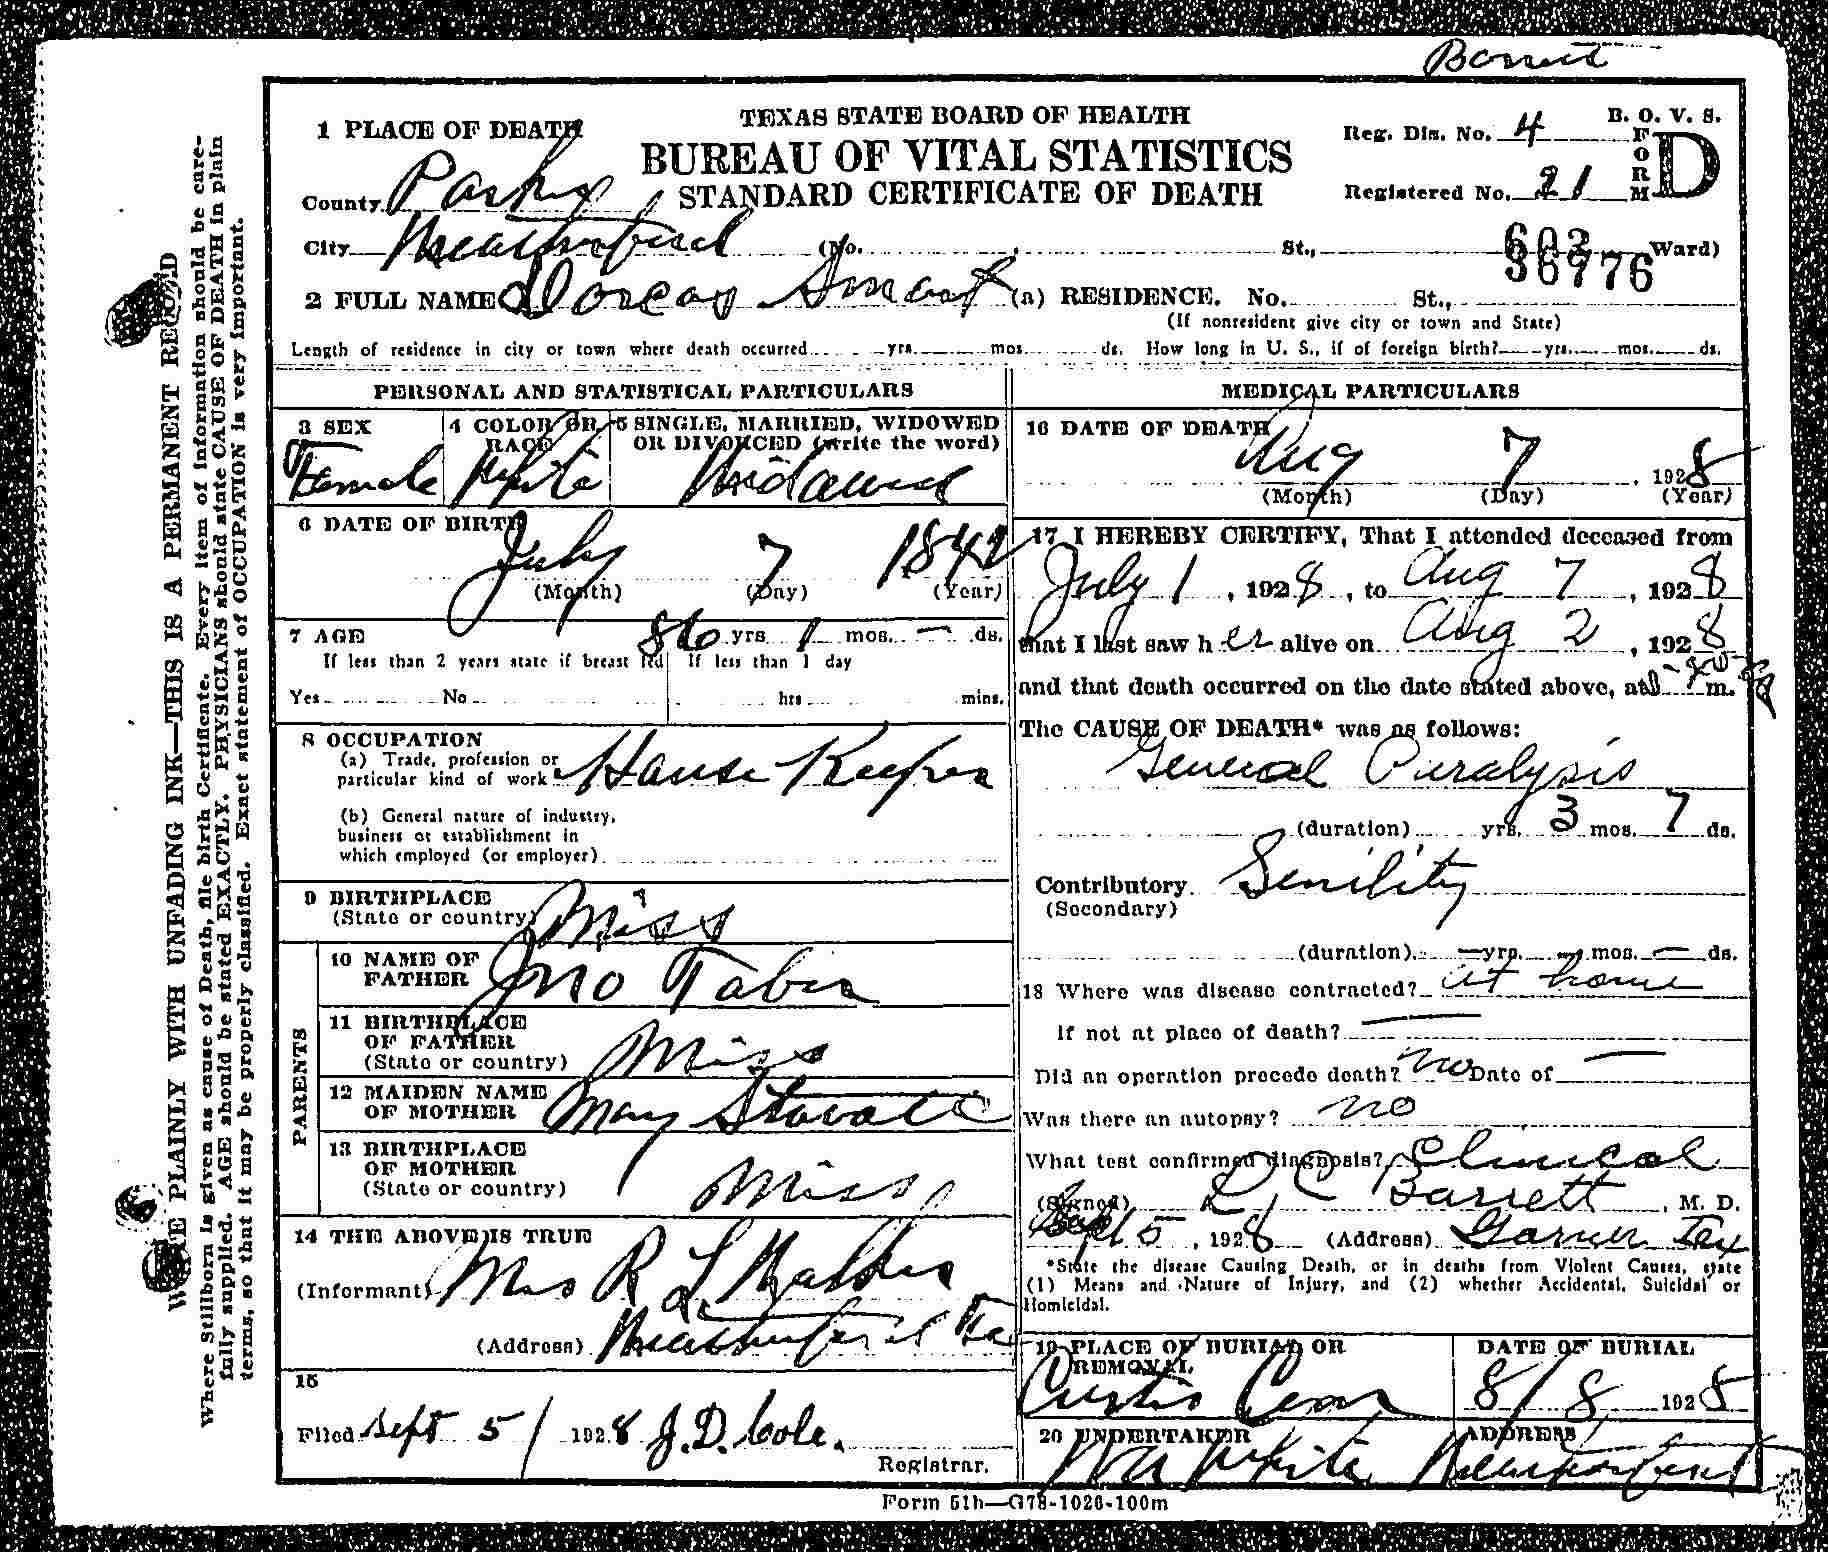 Barrett
TEXAS STATE BOARD OF HEALTH
BUREAU OF VITAL STATISTICS
STANDARD CERTIFICATE OF DEATH
Reg. Dis. No. 4
Registered No. 21
B. O. V. S.
FORM D
1 PLACE OF DEATH
County Parker
City Weatherford (No. St., Ward)
603
36776
2 FULL NAME Dorcas Smart (a) RESIDENCE. No. St.,
(If nonresident give city or town and State)
Length of residence in city or town where death occurred yrs. mos. ds. How long in U. S., if of foreign birth? yrs. mos. ds.
PERSONAL AND STATISTICAL PARTICULARS
3 SEX
Female
4 COLOR OR RACE
White
5 SINGLE, MARRIED, WIDOWED
OR DIVORCED (write the word)
Widowed
6 DATE OF BIRTH
July 7 1842
(Month) (Day) (Year)
7 AGE 86 yrs 1 mos. — ds.
If less than 2 years state if breast fed If less than 1 day
Yes No hrs mins.
8 OCCUPATION
(a) Trade, profession or
particular kind of work House Keeper
(b) General nature of industry,
business or establishment in
which employed (or employer)
9 BIRTHPLACE
(State or country) Miss
PARENTS
10 NAME OF
FATHER Jno Taber
11 BIRTHPLACE
OF FATHER
(State or country) Miss
12 MAIDEN NAME
OF MOTHER May Stovall
13 BIRTHPLACE
OF MOTHER
(State or country) Miss
14 THE ABOVE IS TRUE
(Informant) Mrs R L
(Address) Weatherford Tex
15
Filed Sept 5 / 1928 J. D. Cole.
Registrar.
MEDICAL PARTICULARS
16 DATE OF DEATH
Aug 7, 1928
(Month) (Day) (Year)
17 I HEREBY CERTIFY, That I attended deceased from
July 1, 1928, to Aug 7, 1928
that I last saw her alive on Aug 2, 1928
and that death occurred on the date stated above, at m.
The CAUSE OF DEATH* was as follows:
General Paralysis
(duration) yrs. 3 mos. 7 ds.
Contributory Senility
(Secondary)
(duration) — yrs. — mos. — ds.
18 Where was disease contracted? at home
If not at place of death? —
Did an operation precede death? no Date of —
Was there an autopsy? no
What test confirmed diagnosis? Clinical
(Signed) L C Barrett, M. D.
Sept 5, 1928 (Address) Garner Tex
*State the disease Causing Death, or in deaths from Violent Causes, state
(1) Means and Nature of Injury, and (2) whether Accidental, Suicidal or
Homicidal.
19 PLACE OF BURIAL OR
REMOVAL
Curtis Cem
DATE OF BURIAL
8/8, 1928
20 UNDERTAKER
White
ADDRESS
Weatherford
Form 51h—G78-1026-100m
WRITE PLAINLY WITH UNFADING INK—THIS IS A PERMANENT RECORD
Where Stillborn is given as cause of Death, file birth Certificate. Every item of information should be care-
fully supplied. AGE should be stated EXACTLY. PHYSICIANS should state CAUSE OF DEATH in plain
terms, so that it may be properly classified. Exact statement of OCCUPATION is very important.